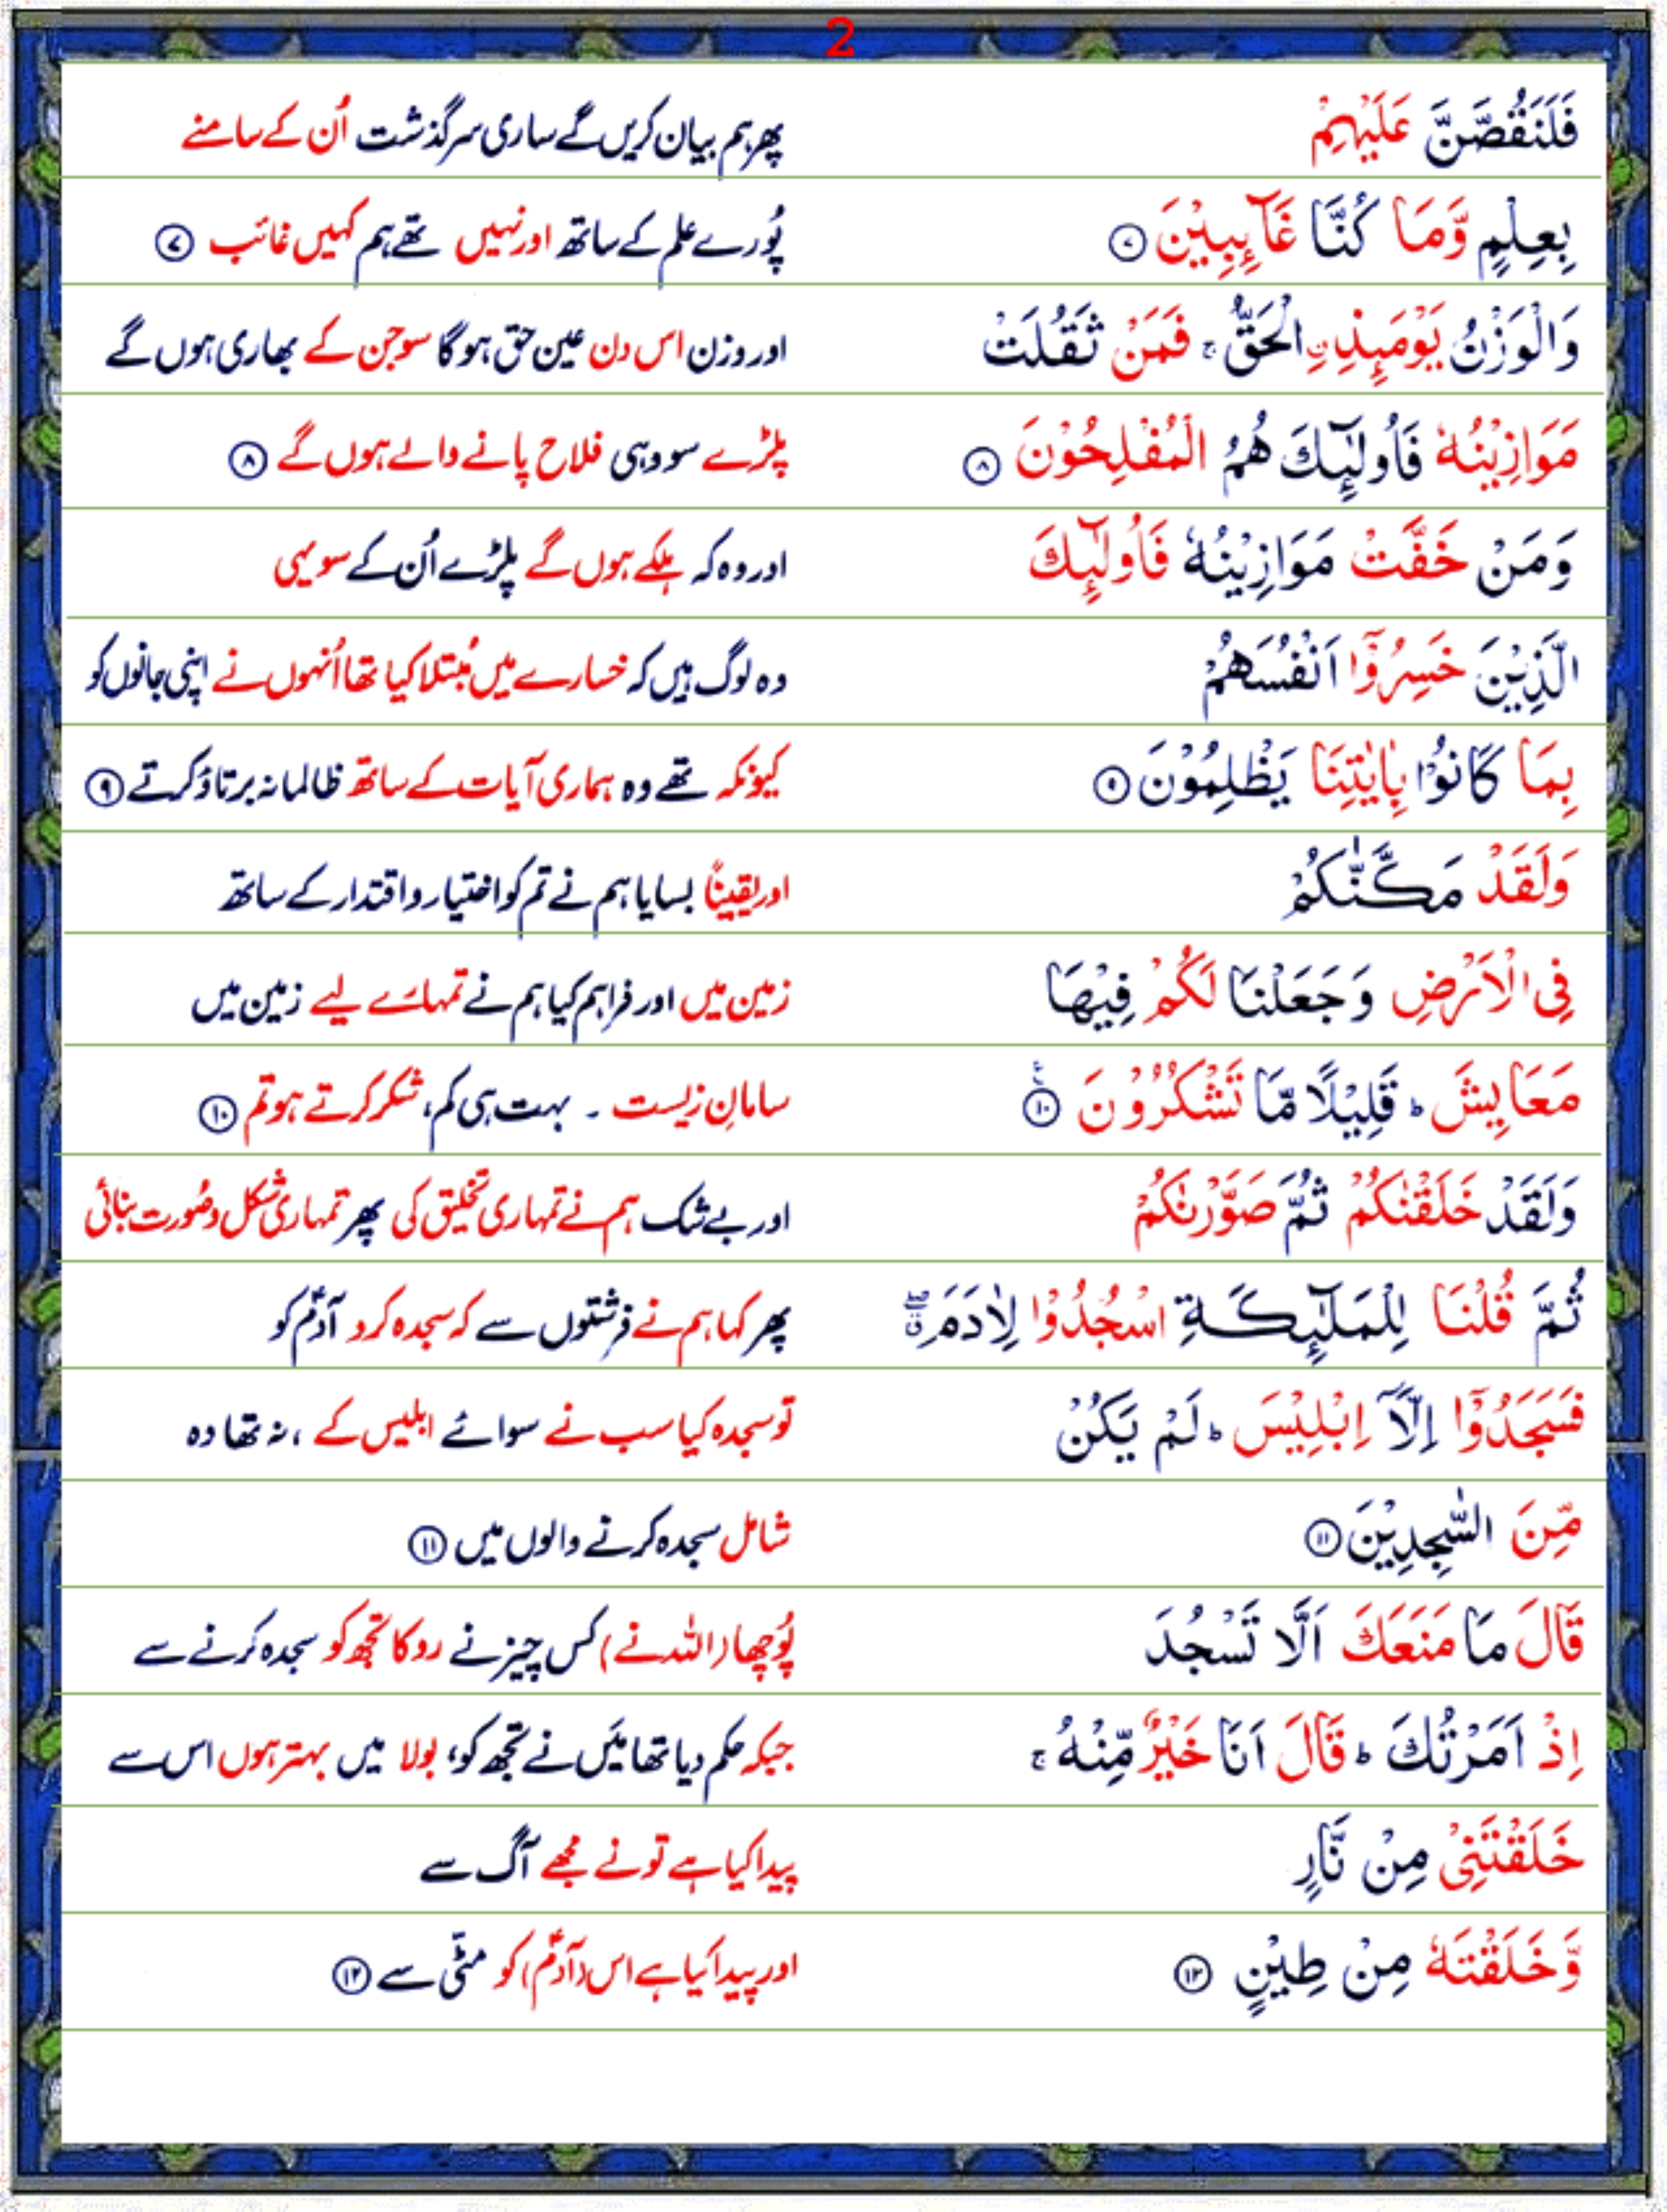 2
فَلَنَقُصَّنَّ عَلَيْهِمْ پھر ہم بیان کریں گے ساری سرگذشت اُن کے سامنے
بِعِلْمٍ وَّمَا كُنَّا غَآئِبِيْنَ ۷ پُورے علم کے ساتھ اور نہیں تھے ہم کہیں غائب ۷
وَالْوَزْنُ يَوْمَئِذِ ِۨالْحَقُّ ۚ فَمَنْ ثَقُلَتْ اور وزن اس دن عین حق ہوگا سو جن کے بھاری ہوں گے
مَوَازِيْنُهٗ فَاُولٰٓئِكَ هُمُ الْمُفْلِحُوْنَ ۸ پلڑے سو وہی فلاح پانے والے ہوں گے ۸
وَمَنْ خَفَّتْ مَوَازِيْنُهٗ فَاُولٰٓئِكَ اور وہ کہ ہلکے ہوں گے پلڑے اُن کے سو یہی
الَّذِيْنَ خَسِرُوْٓا اَنْفُسَهُمْ وہ لوگ ہیں کہ خسارے میں مُبتلا کیا تھا اُنہوں نے اپنی جانوں کو
بِمَا كَانُوْا بِاٰيٰتِنَا يَظْلِمُوْنَ ۹ کیونکہ تھے وہ ہماری آیات کے ساتھ ظالمانہ برتاؤ کرتے ۹
وَلَقَدْ مَكَّنّٰكُمْ اور یقیناً بسایا ہم نے تم کو اختیار و اقتدار کے ساتھ
فِى الْاَرْضِ وَجَعَلْنَا لَكُمْ فِيْهَا زمین میں اور فراہم کیا ہم نے تمہارے لیے زمین میں
مَعَايِشَ ؕ قَلِيْلًا مَّا تَشْكُرُوْنَ ۱۰ ع سامانِ زیست ۔ بہت ہی کم، شکر کرتے ہو تم ۱۰
وَلَقَدْ خَلَقْنٰكُمْ ثُمَّ صَوَّرْنٰكُمْ اور بے شک ہم نے تمہاری تخلیق کی پھر تمہاری شکل و صُورت بنائی
ثُمَّ قُلْنَا لِلْمَلٰٓئِكَةِ اسْجُدُوْا لِاٰدَمَ ۖق پھر کہا ہم نے فرشتوں سے کہ سجدہ کرو آدمؑ کو
فَسَجَدُوْٓا اِلَّآ اِبْلِيْسَ ؕ لَمْ يَكُنْ تو سجدہ کیا سب نے سوائے ابلیس کے ، نہ تھا وہ
مِّنَ السّٰجِدِيْنَ ۱۱ شامل سجدہ کرنے والوں میں ۱۱
قَالَ مَا مَنَعَكَ اَلَّا تَسْجُدَ پُوچھا (اللہ نے) کس چیز نے روکا تجھ کو سجدہ کرنے سے
اِذْ اَمَرْتُكَ ؕ قَالَ اَنَا خَيْرٌ مِّنْهُ ۚ جبکہ حکم دیا تھا میَں نے تجھ کو، بولا میں بہتر ہوں اس سے
خَلَقْتَنِىْ مِنْ نَّارٍ پیدا کیا ہے تو نے مجھے آگ سے
وَّخَلَقْتَهٗ مِنْ طِيْنٍ ۱۲ اور پیدا کیا ہے اس (آدمؑ) کو مٹّی سے ۱۲